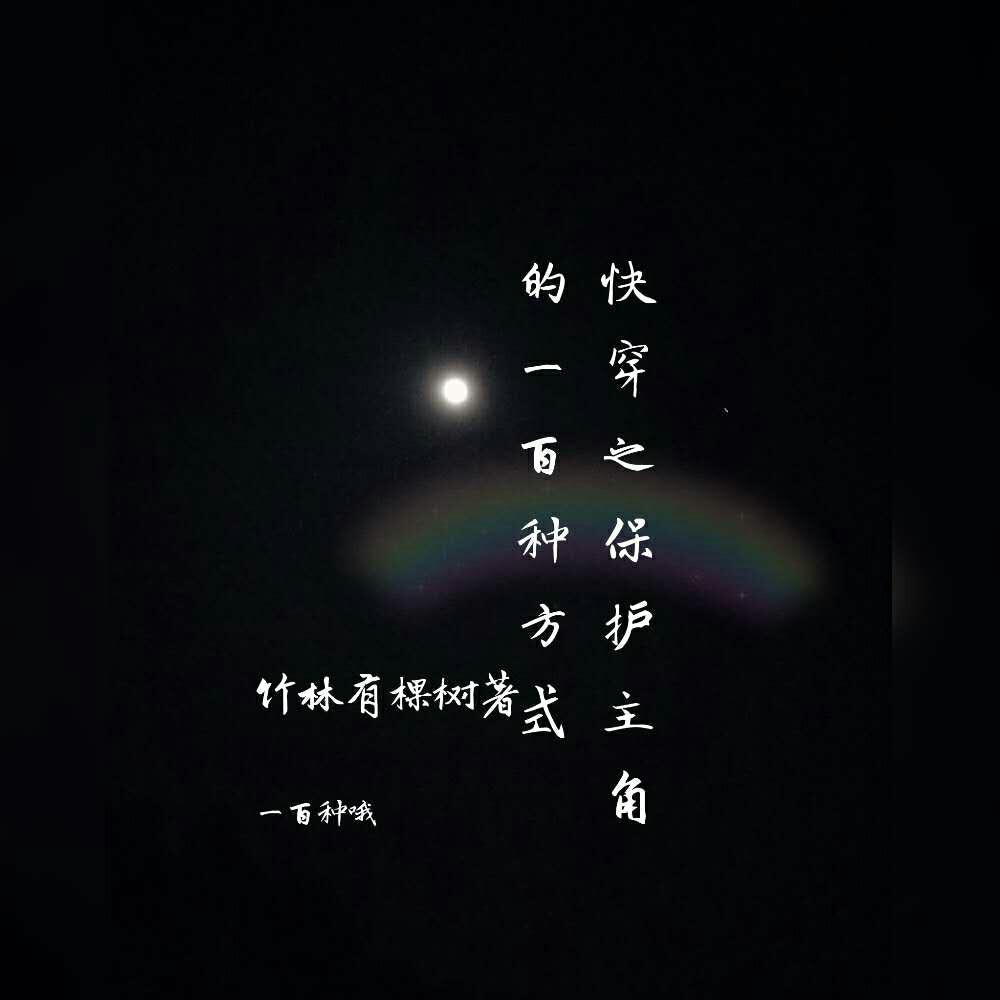 快穿之保护主角
的一百种方式
竹林有棵树著
一百种哦